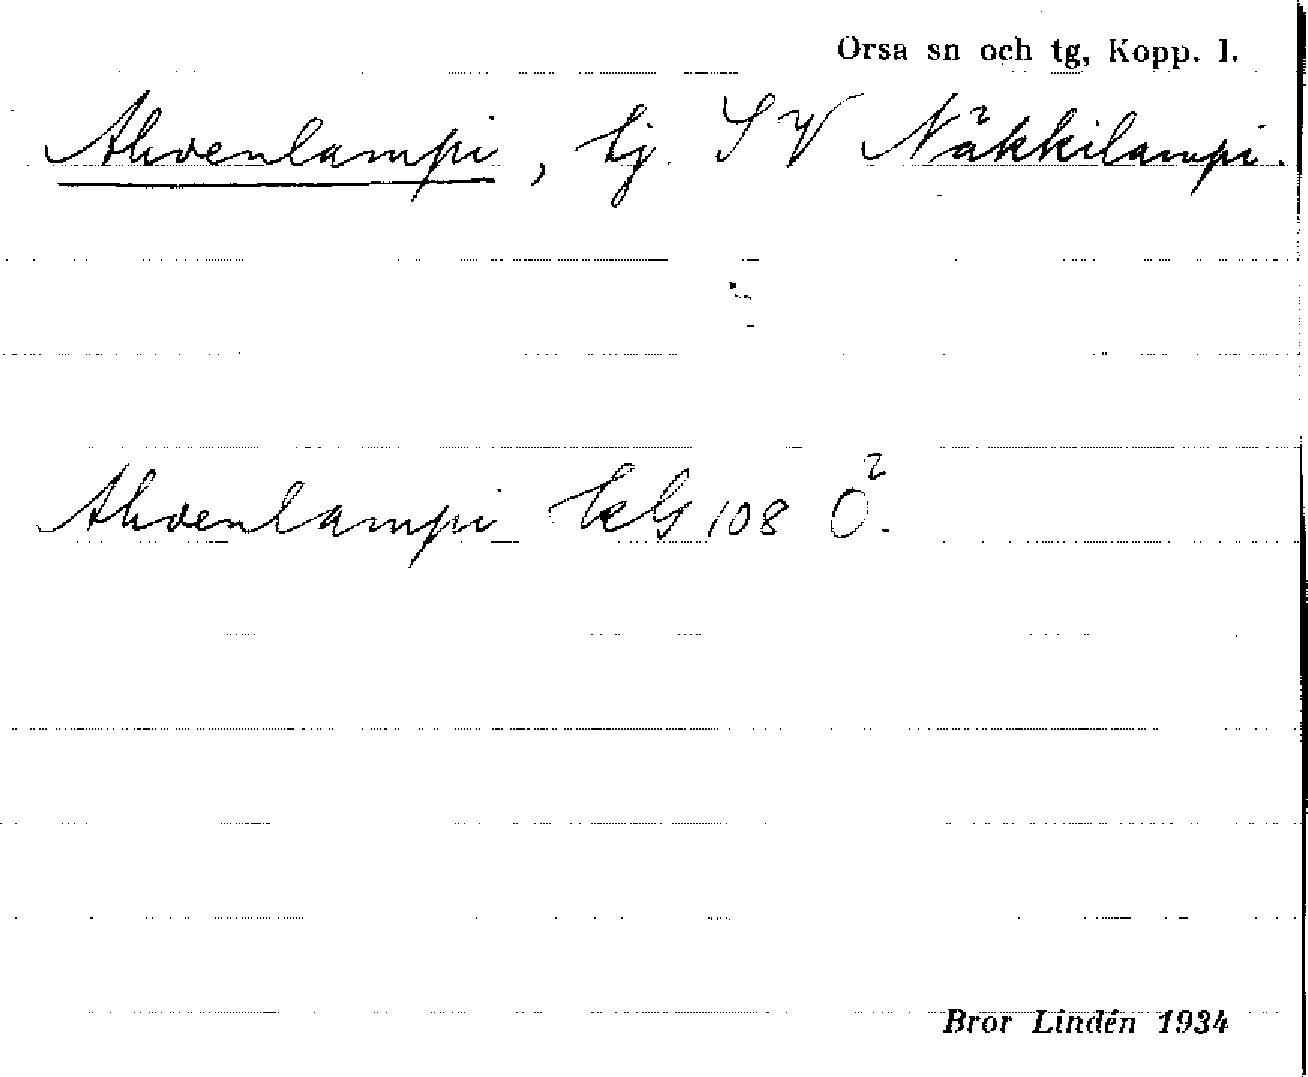 Orsa sn och tg, Kopp. l.
Ahvenlampi, tj. SV Näkkilampi.
Ahvenlampi EkG 108 Ö.
Bror Lindén 1934